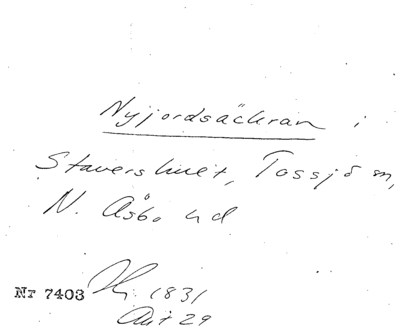 Nyjordsäckran i
Stavershult, Tossjö sn,
N. Åsbo hd
Nr 7403
1831
Akt 29